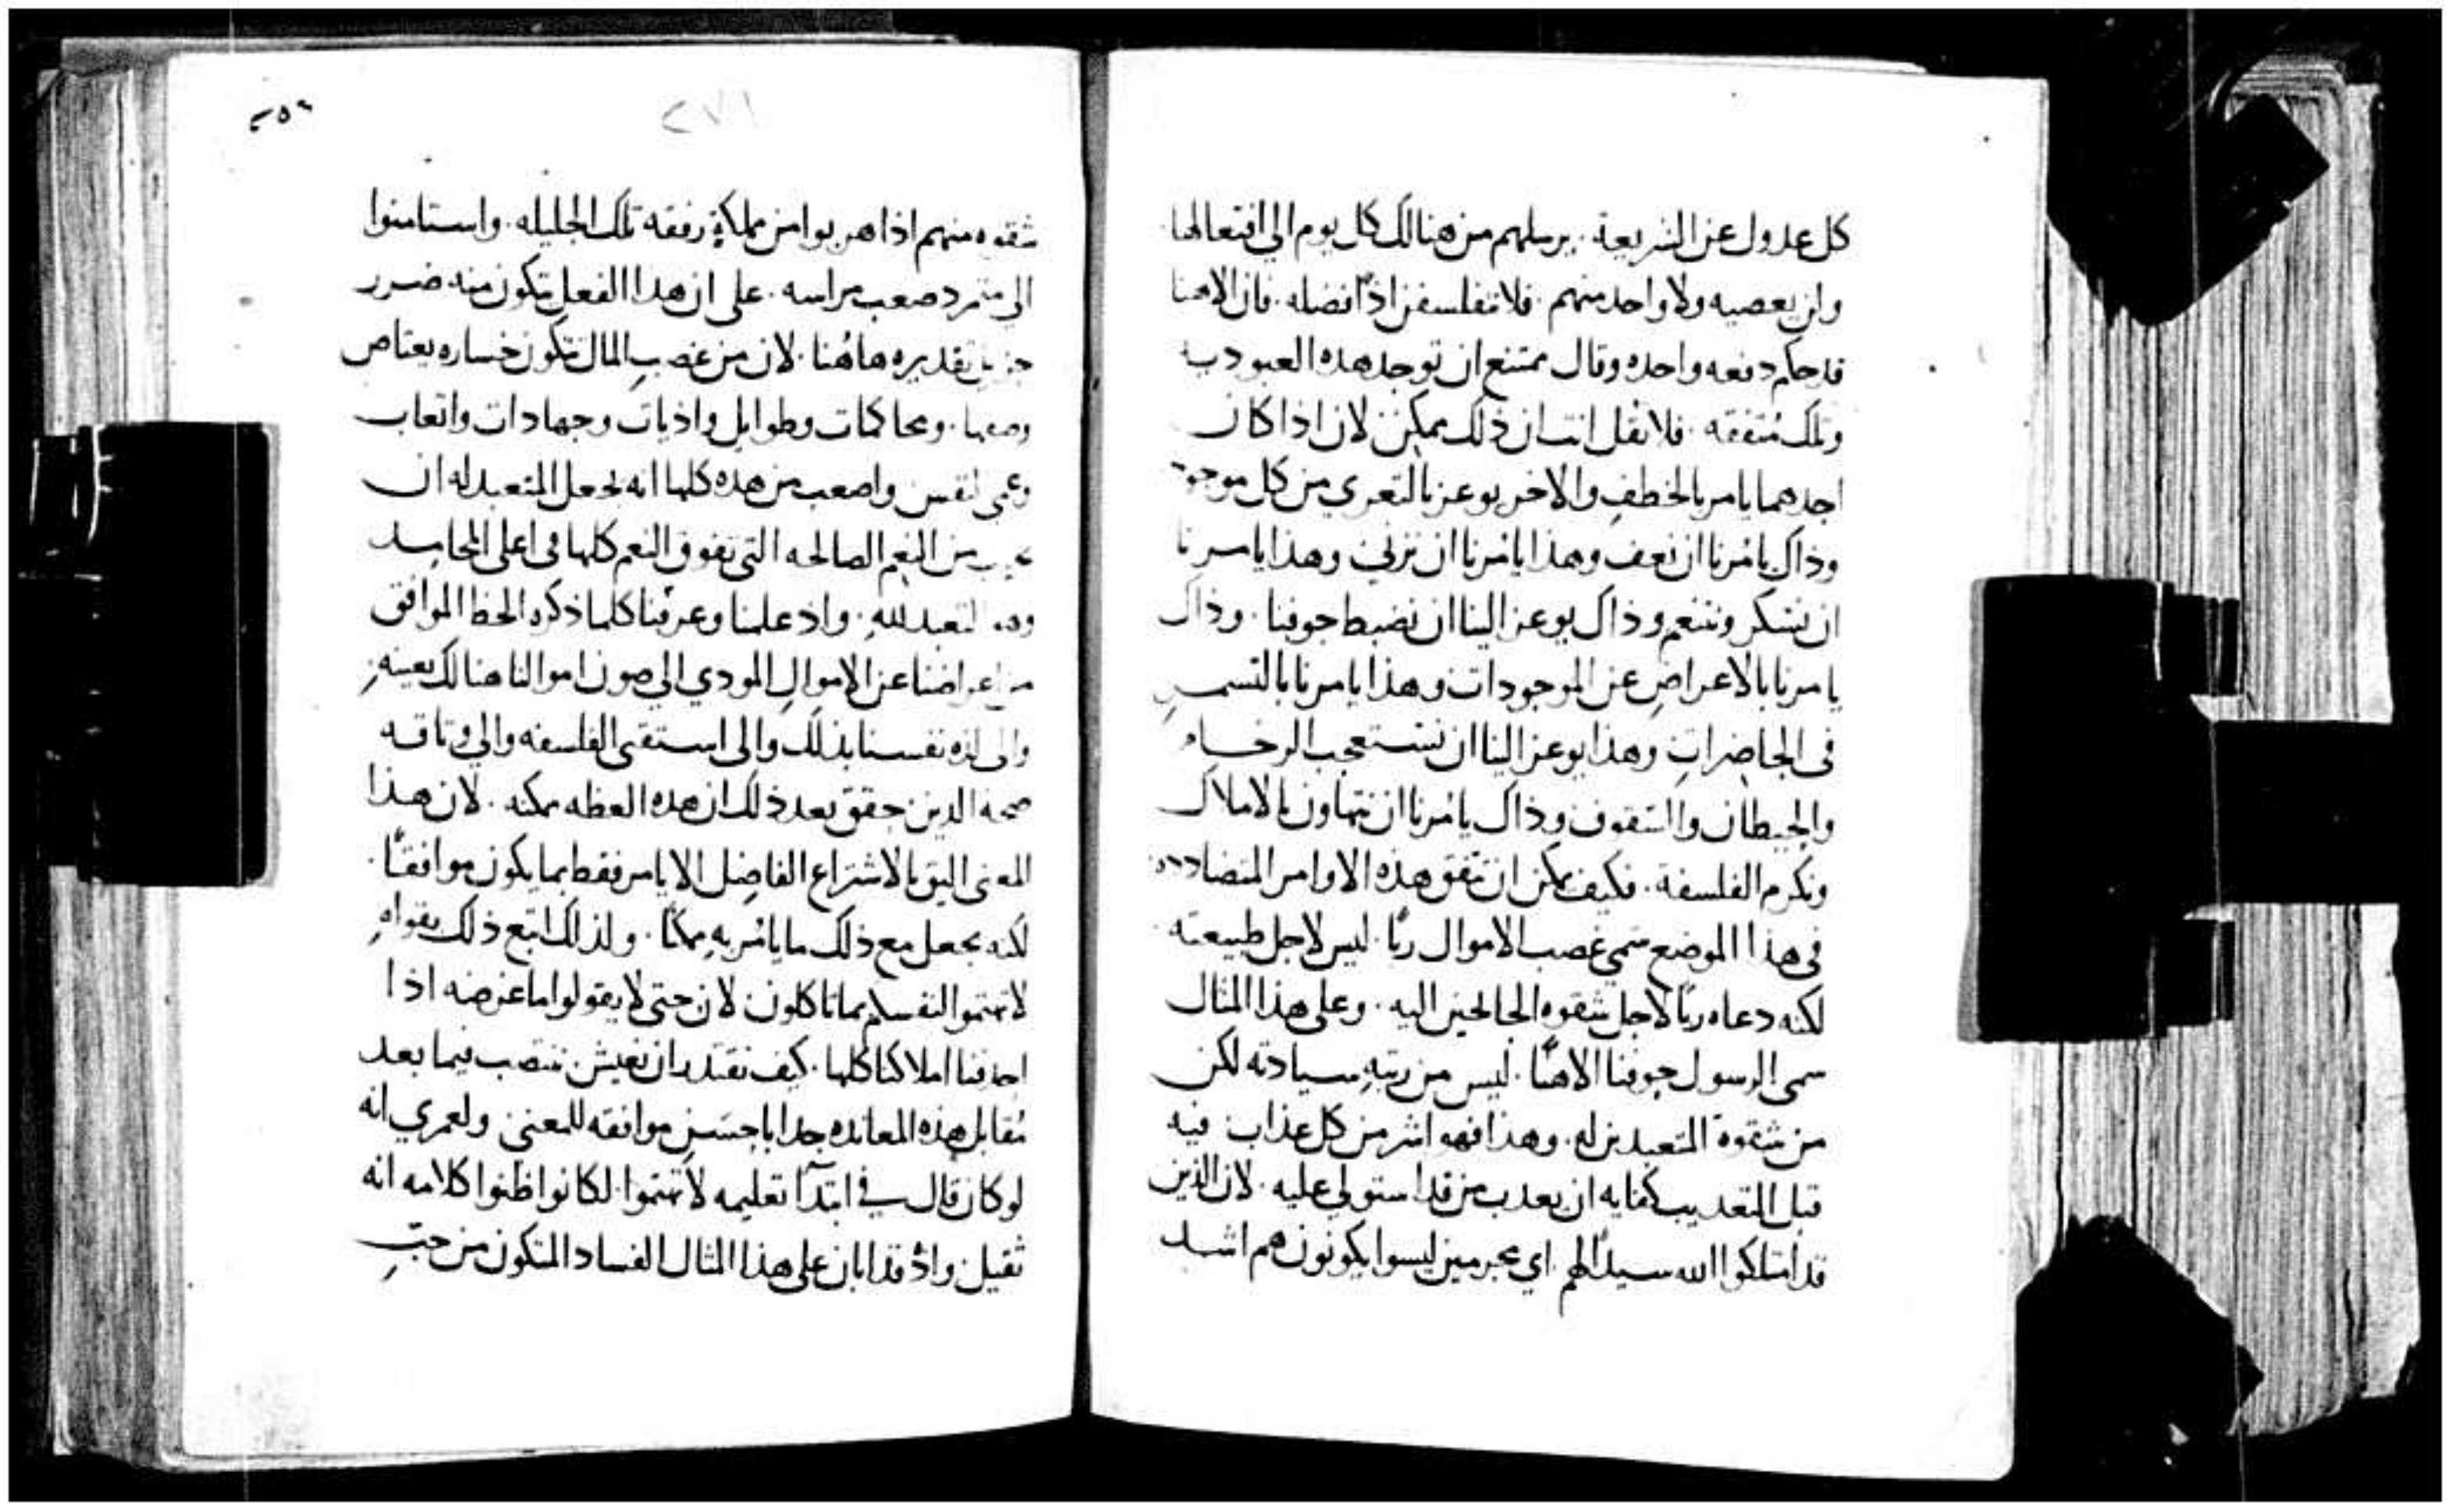 كل عدول عن الشريعة. يرسلهم من هنالك كل يوم الي افتعالها
وان يعصيه ولا واحد منهم. فلا تفلسفن اذًا فضله. فان الاهنا
قد حكم دفعه واحده وقال ممتنع ان توجد هذه العبوديه
وتلك متفقه. فلا تقل انت ان ذلك ممكن لان اذا كان
احدهما يامر بالخطف والاخر يوعز بالتعري من كل موجود
وذاك يامُرنا ان نعف وهذا يامُرنا ان نزني وهذا يامرنا
ان نسكر ونتنعم وذاك يوعز الينا ان نضبط جوفنا. وذاك
يامرنا بالاعراضِ عن الموجودات وهذا يامرنا بالتسمرِ
في الحاضراتِ وهذا يوعز الينا ان نستعجب الرخام
والحيطان والسقوف وذاك يامُرنا ان نتهاون بالاملاك
ونكرم الفلسفة. فكيف يمكن ان تتفق هذه الاوامر المتضادده
في هذا الموضع سمي غصب الاموال ربًا. ليس لاجل طبيعته
لكنه دعاه ربًا لاجل شقوه الجانحين اليه. وعلي هذا المثال
سمي الرسول جوفنا الاهنًا. ليس من رتبهِ سيادته لكن
من شقوة المتعبدين له. وهذا فهو اشر من كل عذاب فيه
قبل التعذيب كفايه ان يعذب من قد استولي عليه. لان الذين
قد امتلكوا الله سيدًا لهم. اي مجرمين ليسوا يكونون هم اشد
٢٥٦
٢٧١
شقوه منهم اذا هربوا من مملكةٍ رفقه تلك الجليله. واستامنوا
الي متمرد صعب مراسه. علي ان هذا الفعل تتكون منه ضرر
جزيل تقديره هاهُنا. لان من غصبِ المال تتكون خساره يعتاص
وصفها. ومحاكمات وطوايل واذيات وجهادات واتعاب
وعمي النفس واصعب من هذه كلها انه يجعل المتعبد له ان
يخيب من النعم الصالحه التي تفوق النعم كلها في اعلي المحامد
وهو التعبد للهِ. واذ علمنا وعرفنا كلما ذكره الحظ الموافق
من اعراضنا عن الاموالِ المودي الي صون اموالنا هنالك بعينهِ
والي لذه نفسنا بذلك والي استقصي الفلسفه والي وثاقه
صحه الدين حقق بعد ذلك ان هذه العظه ممكنه. لان هذا
المعني اليق بالاشتراع الفاضِل الا يامر فقط بما يكون موافقًا.
لكنه يجعل مع ذلك ما يامُر بهِ ممكنًا. ولذلك اتبع ذلك بقولهِ
لا تهتموا لنفسكم بما تاكلون لان حتي لا يقولوا ما غرضه اذا
احدفنا املاكنا كلها. كيف نقتدر ان نعيش ننتصب فيما بعد
مُقابل هذه المعانده جدا باحسَن موافقه للمعني ولعمري انه
لو كان قال في ابتدآ تعليمه لا تهتموا. لكانوا ظنوا كلامه انه
ثقيل. واذ قد ابان علي هذا المثال الفساد المتكون من حبِّ